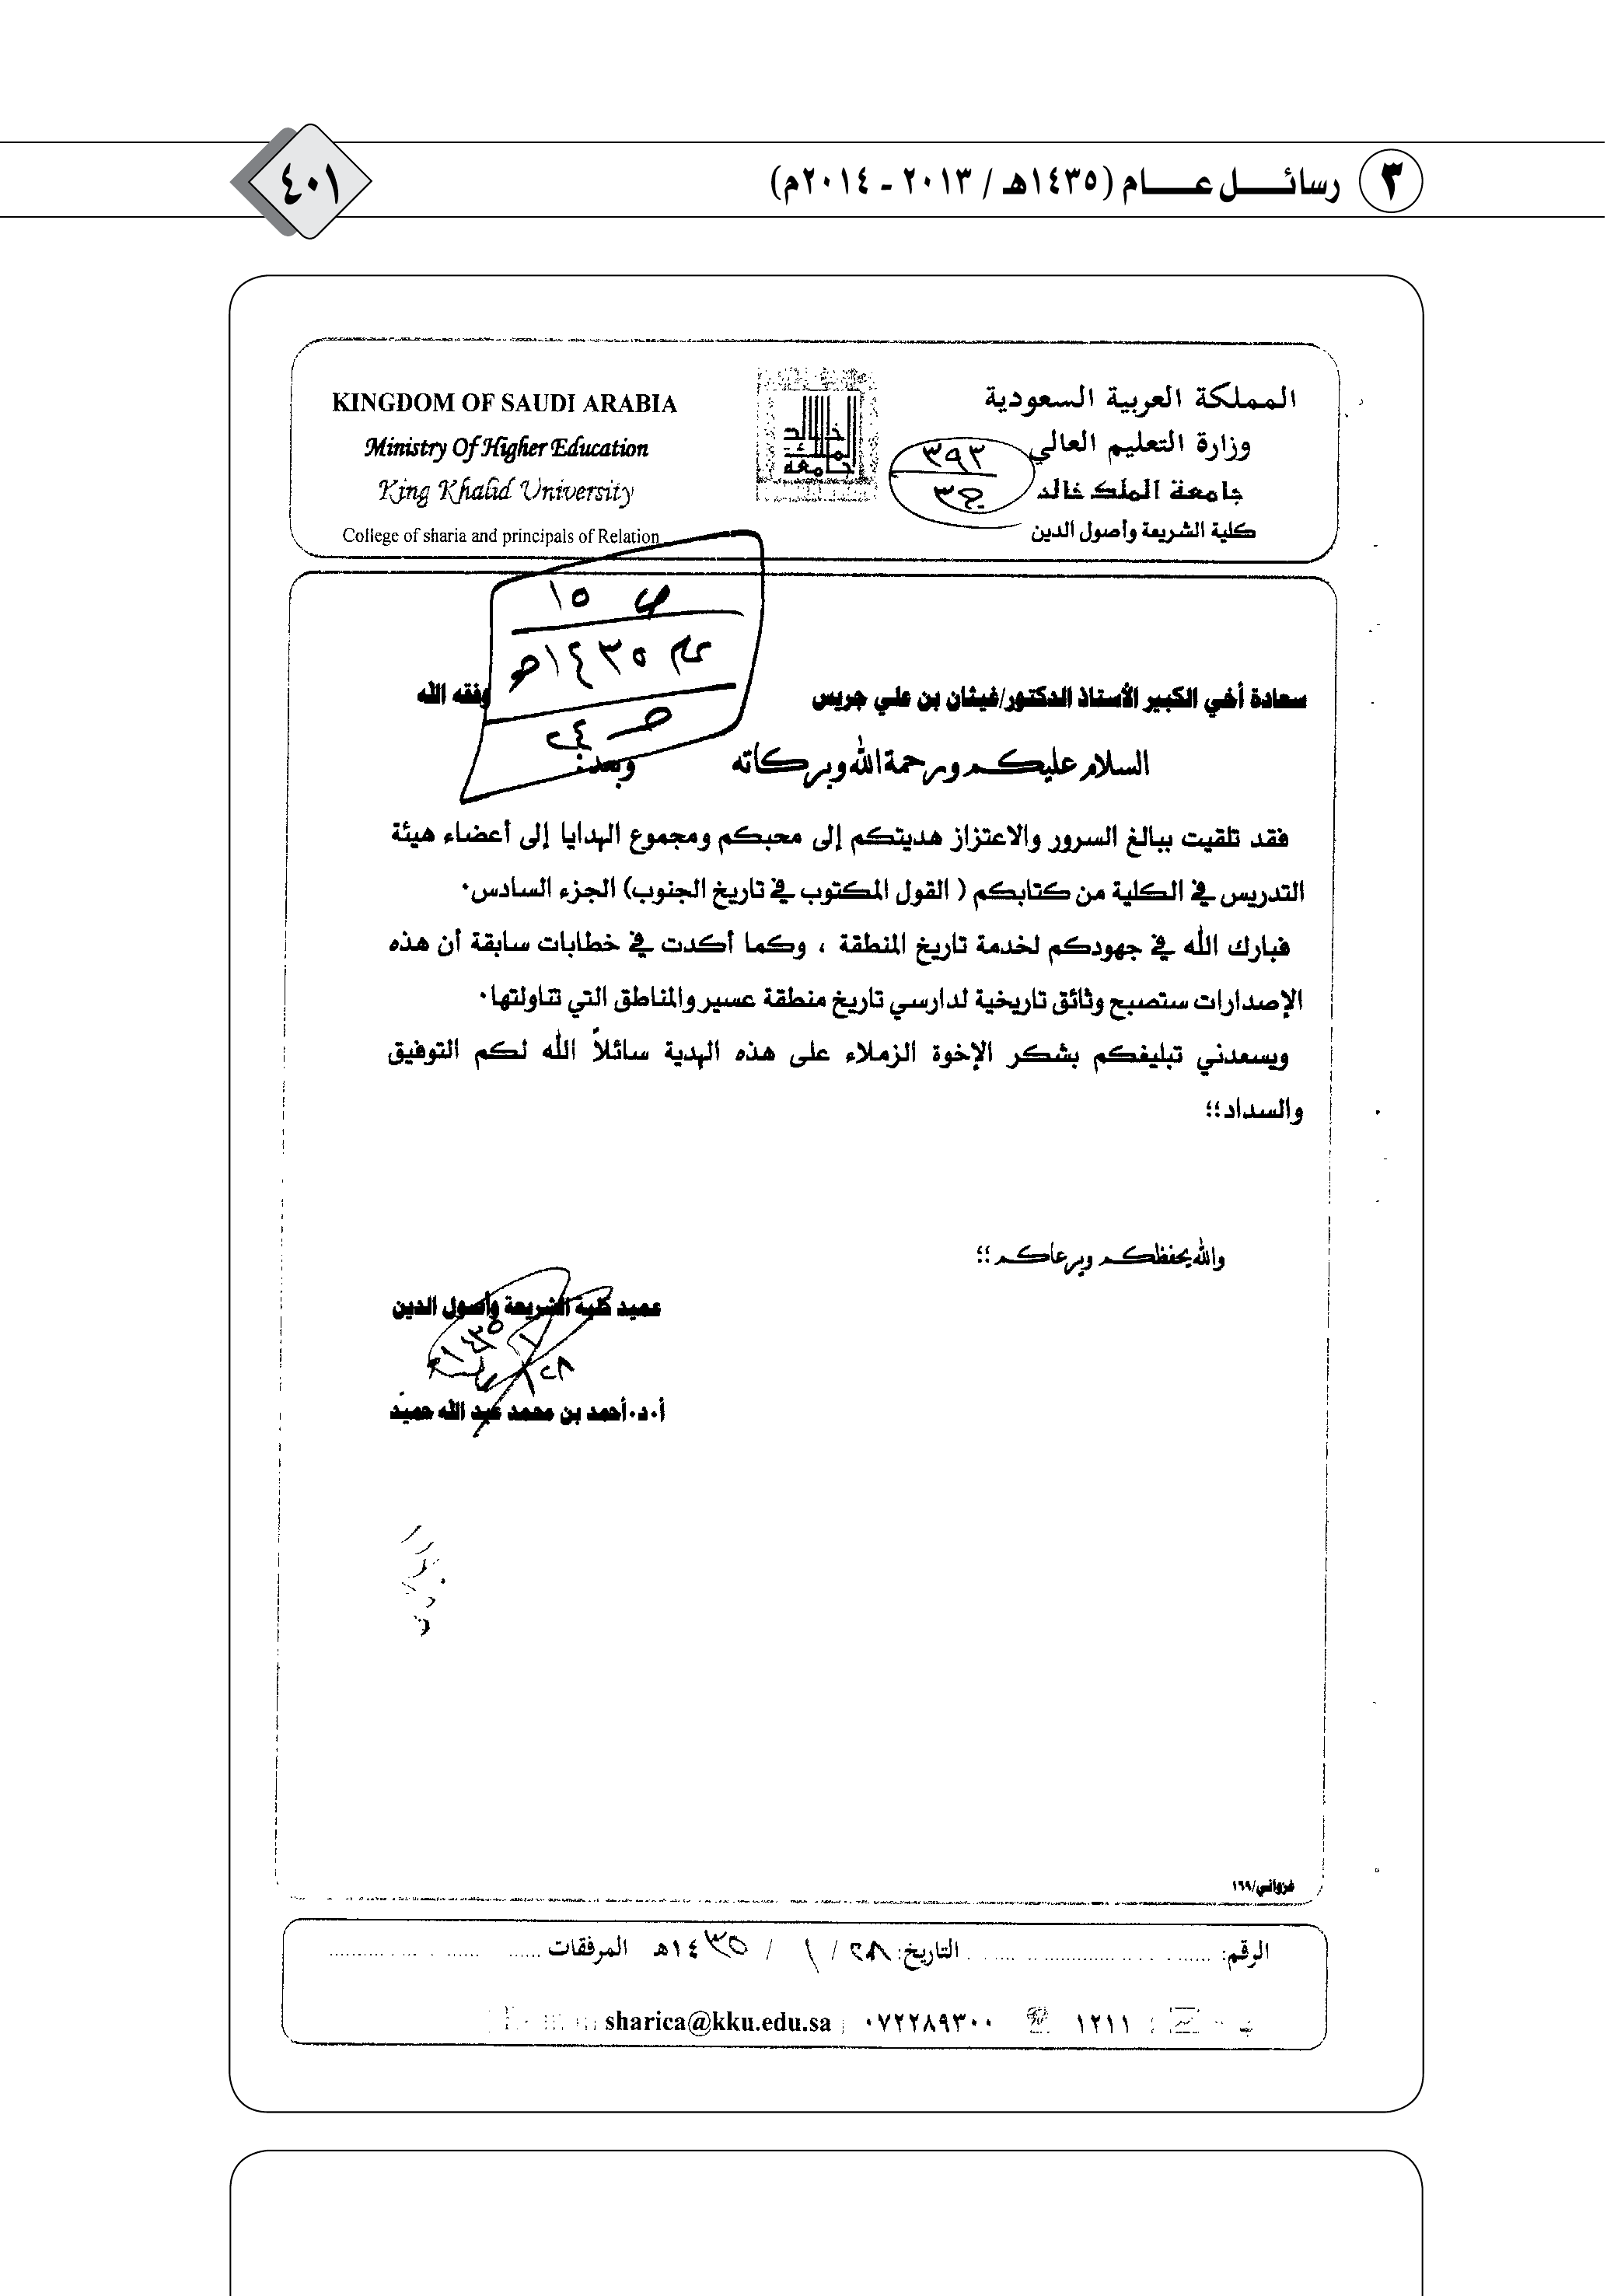 ٣ رسائــــل عــــام (١٤٣٥هـ / ٢٠١٣ - ٢٠١٤م)
٤٠١
المملكة العربية السعودية
وزارة التعليم العالي
جامعة الملك خالد
كلية الشريعة وأصول الدين
٣٩٣
جامعة الملك خالد
KINGDOM OF SAUDI ARABIA
Ministry Of Higher Education
King Khalid University
College of sharia and principals of Relation
١٥
١٤٣٥هـ
سعادة أخي الكبير الأستاذ الدكتور/غيثان بن علي جريس وفقه الله
السلام عليكم ورحمة الله وبركاته وبعد:
فقد تلقيت ببالغ السرور والاعتزاز هديتكم إلى محبكم ومجموع الهدايا إلى أعضاء هيئة
التدريس في الكلية من كتابكم ( القول المكتوب في تاريخ الجنوب) الجزء السادس.
فبارك الله في جهودكم لخدمة تاريخ المنطقة ، وكما أكدت في خطابات سابقة أن هذه
الإصدارات ستصبح وثائق تاريخية لدارسي تاريخ منطقة عسير والمناطق التي تناولتها.
ويسعدني تبليغكم بشكر الإخوة الزملاء على هذه الهدية سائلاً الله لكم التوفيق
والسداد؛؛
والله يحفظكم ويرعاكم؛؛
عميد كلية الشريعة وأصول الدين
أ.د.أحمد بن محمد عبد الله حميد
غزواني/١٦٩
الرقم: التاريخ: ٢٨ / ١ / ١٤٣٥هـ المرفقات
١٢١١ ٠٧٢٢٨٩٣٠٠ sharica@kku.edu.sa